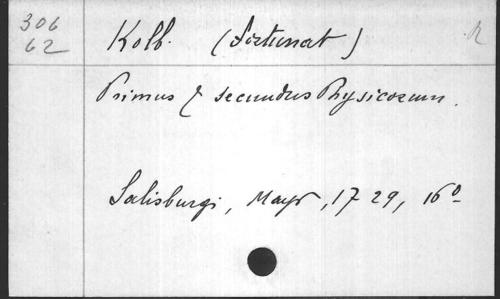 306 Kolb. (Fortunat) R
62
Primus & secundus Physicorum.
Salisburgi, Mayr, 1729, 16º